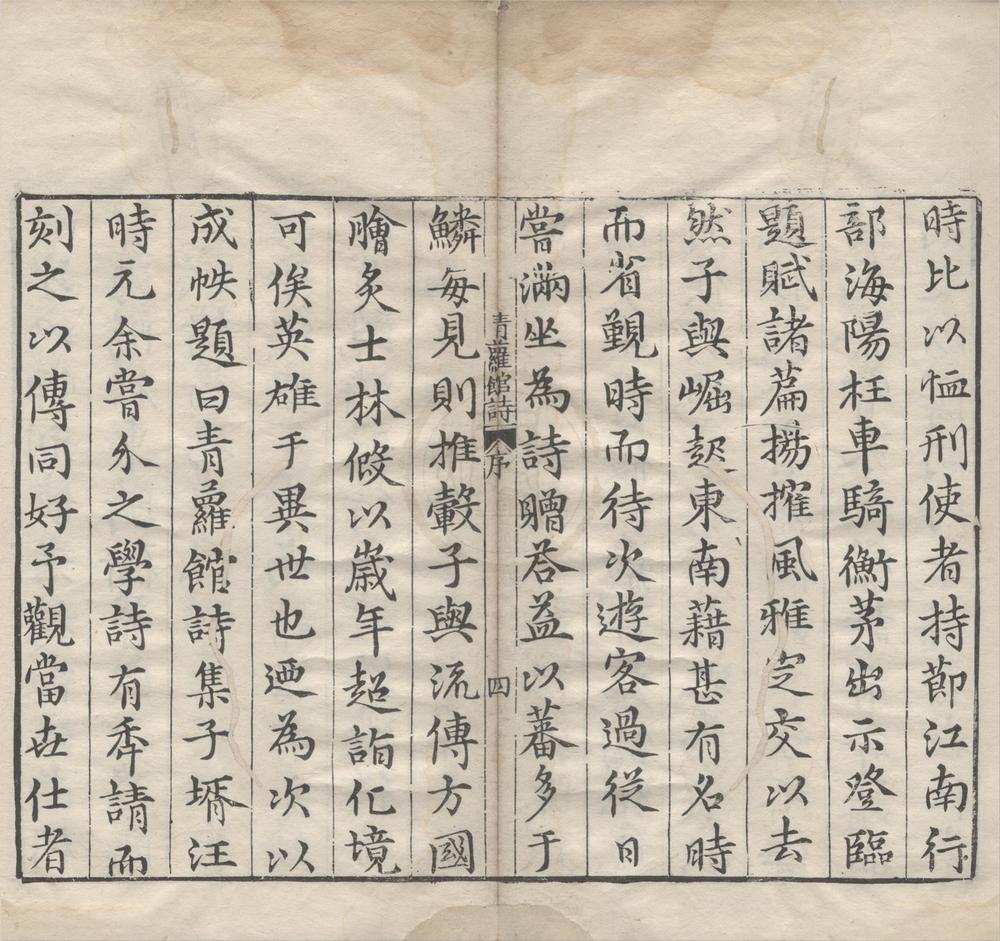 時比以恤刑使者持節江南行
部海陽枉車騎衡茅出示登臨
題賦諸篇揚搉風雅定交以去
然子與崛起東南藉甚有名時
而省覲時而待次遊客過從日
嘗滿坐為詩贈荅益以蕃多于
青蘿館詩 序 四
鱗每見則推轂子與流傳方國
膾炙士林假以歲年超詣化境
可俟英雄于異世也迺為次以
成帙題曰青蘿館詩集子壻汪
時元余嘗介之學詩有秊請而
刻之以傳同好予觀當世仕者